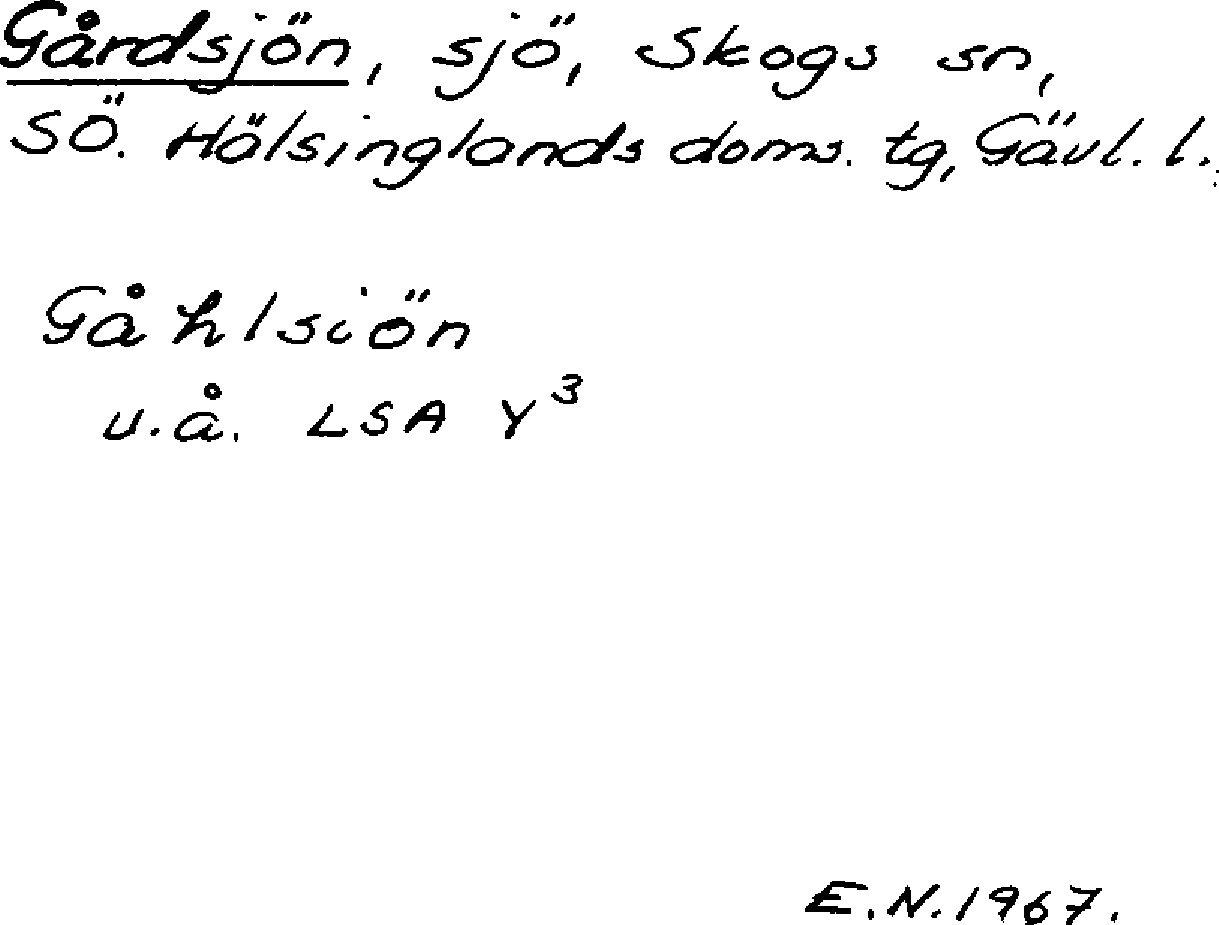 Gårdsjön, sjö, Skogs sn,
SÖ. Hälsinglands doms. tg, Gävl. l.
Gåhlsiön
u.å. LSA Y³
E.N. 1967.